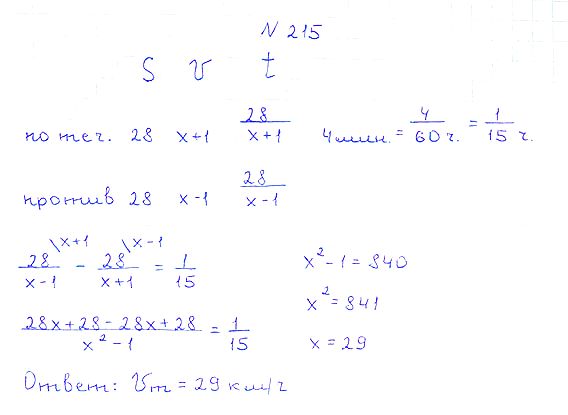 N 215
S v t
по теч. 28 x+1 28/(x+1) 4 мин. = 4/60 ч. = 1/15 ч.
против 28 x-1 28/(x-1)
28/(x-1) \x+1 - 28/(x+1) \x-1 = 1/15
(28x+28-28x+28)/(x²-1) = 1/15
x²-1 = 840
x² = 841
x = 29
Ответ: Vт = 29 км/ч